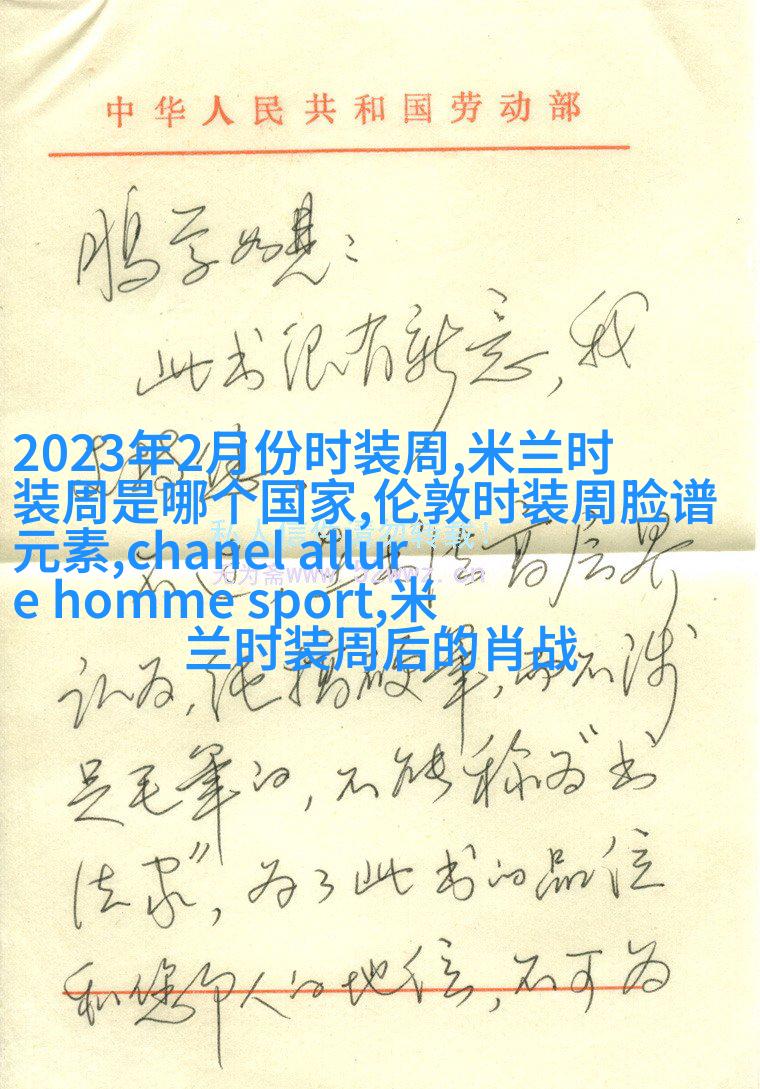 中华人民共和国劳动部
鹏学如晤：
此书很有新意，我
2023年2月份时装周,米兰时
装周是哪个国家,伦敦时装周脸谱
元素,chanel allur
e homme sport,米
兰时装周后的肖战
认为，纯搞硬笔，而不涉
足毛笔的，不能称为“书
法家”，为了此书的品位
和您个人的地位，不可为